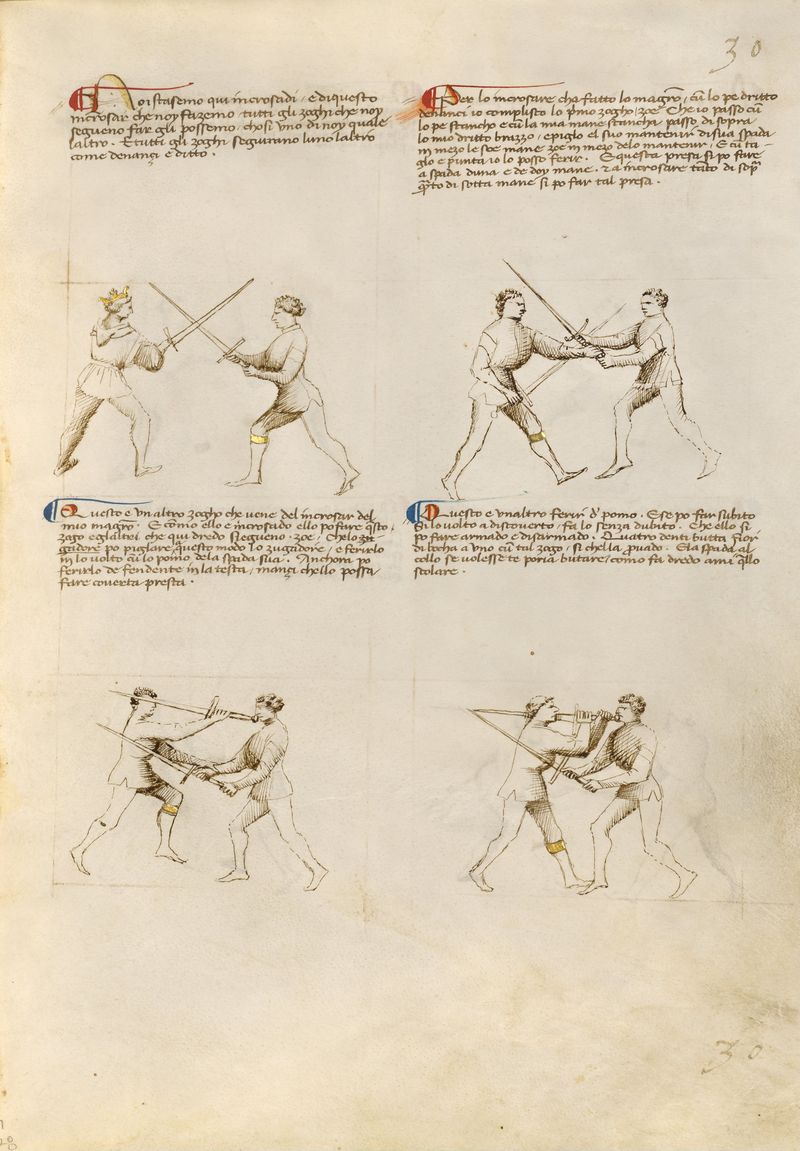 30
Noi stasemo qui incrosadi / e di questo
incrosar che noy fazemo tutti gli zoghi che noy
segueno far gli possemo / chosi uno di noy quale
laltro. E tutti gli zoghi seguirano luno laltro
come denançi e ditto.
Per lo incrosare cha fatto lo magrō / cū lo pe dritto
denanci io complisto lo primo zogho / zoe Che io passo cū
lo pe stancho e cū la mia mane stancha passo di sopra
lo mio dritto brazzo / e piglo el suo mantenir di sua spada
in mezo le soe mane zoe in mezo delo mantenir / E cū ta-
glo e punta io lo posso ferir. E questa presa si po fare
a spada duna e de doy mane. 
di sotta mane si po far tal presa.
Questo e un altro zogho che uene del incrosar del
mio magrō. E como ello e incrosado ello po fare q̄sto
zogo e gli altri che qui dredo segueno. zoe / Che lo zu-
gadore po piglare a questo modo lo zugadore / e ferirlo
in lo uolto cū lo pomo dela spada sua. Anchora po
ferirlo de fendente in la testa / mançi chello possa
fare couerta presta.
Questo e unaltro ferir d' pomo. E se po far subito
Si lo uolto a discouerto / fa lo senza dubito. Che ello si
po fare armado e disarmado. Quatro denti butta fuor
di bocha a uno cū tal zogo / si chella prouado. E la spada al
collo se uolesse te poria butare / como fa dredo a mi q̄llo
scolare.
30